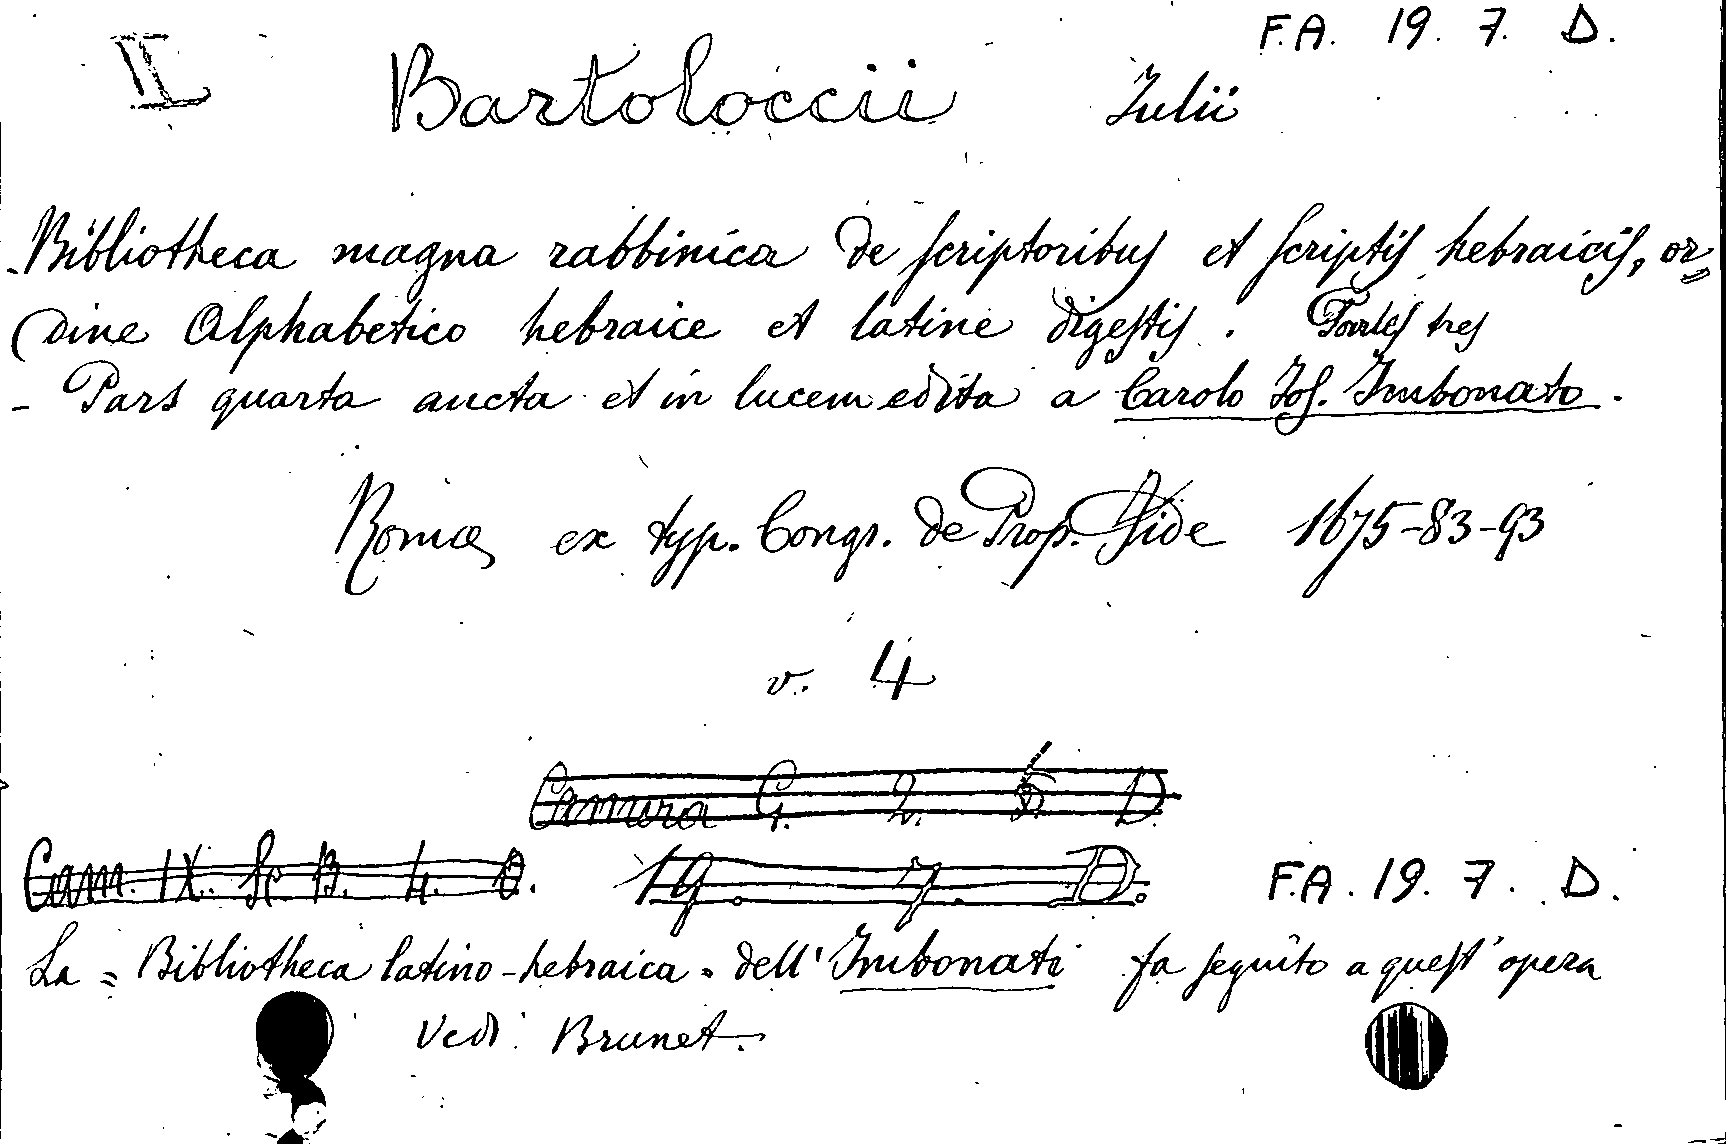 F.A. 19. 7. D.
II Bartoloccii Julii
Bibliotheca magna rabbinica de scriptoribus et scriptis hebraicis, or=
dine Alphabetico hebraice et latine digestis. Partes tres
- Pars quarta aucta et in lucem edita a Carolo Jos. Imbonato.
Romae ex typ. Congr. de Prop. Fide 1675-83-93
v. 4
Camera G. 2. D.
Cam. IX. Sc. B. 4. D. 19. 7. D. F.A. 19. 7. D.
La = Bibliotheca latino-hebraica = dell' Imbonati fa seguito a quest' opera
Vedi: Brunet.